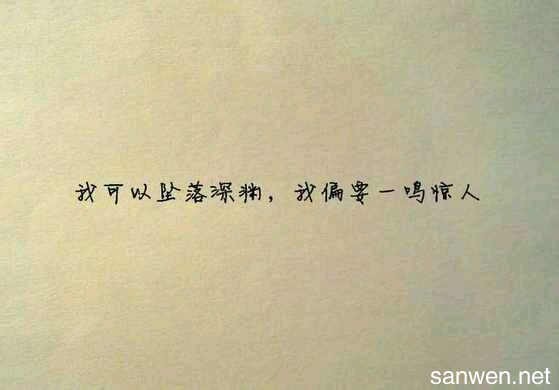 我可以坠落深渊，我偏要一鸣惊人
sanwen.net